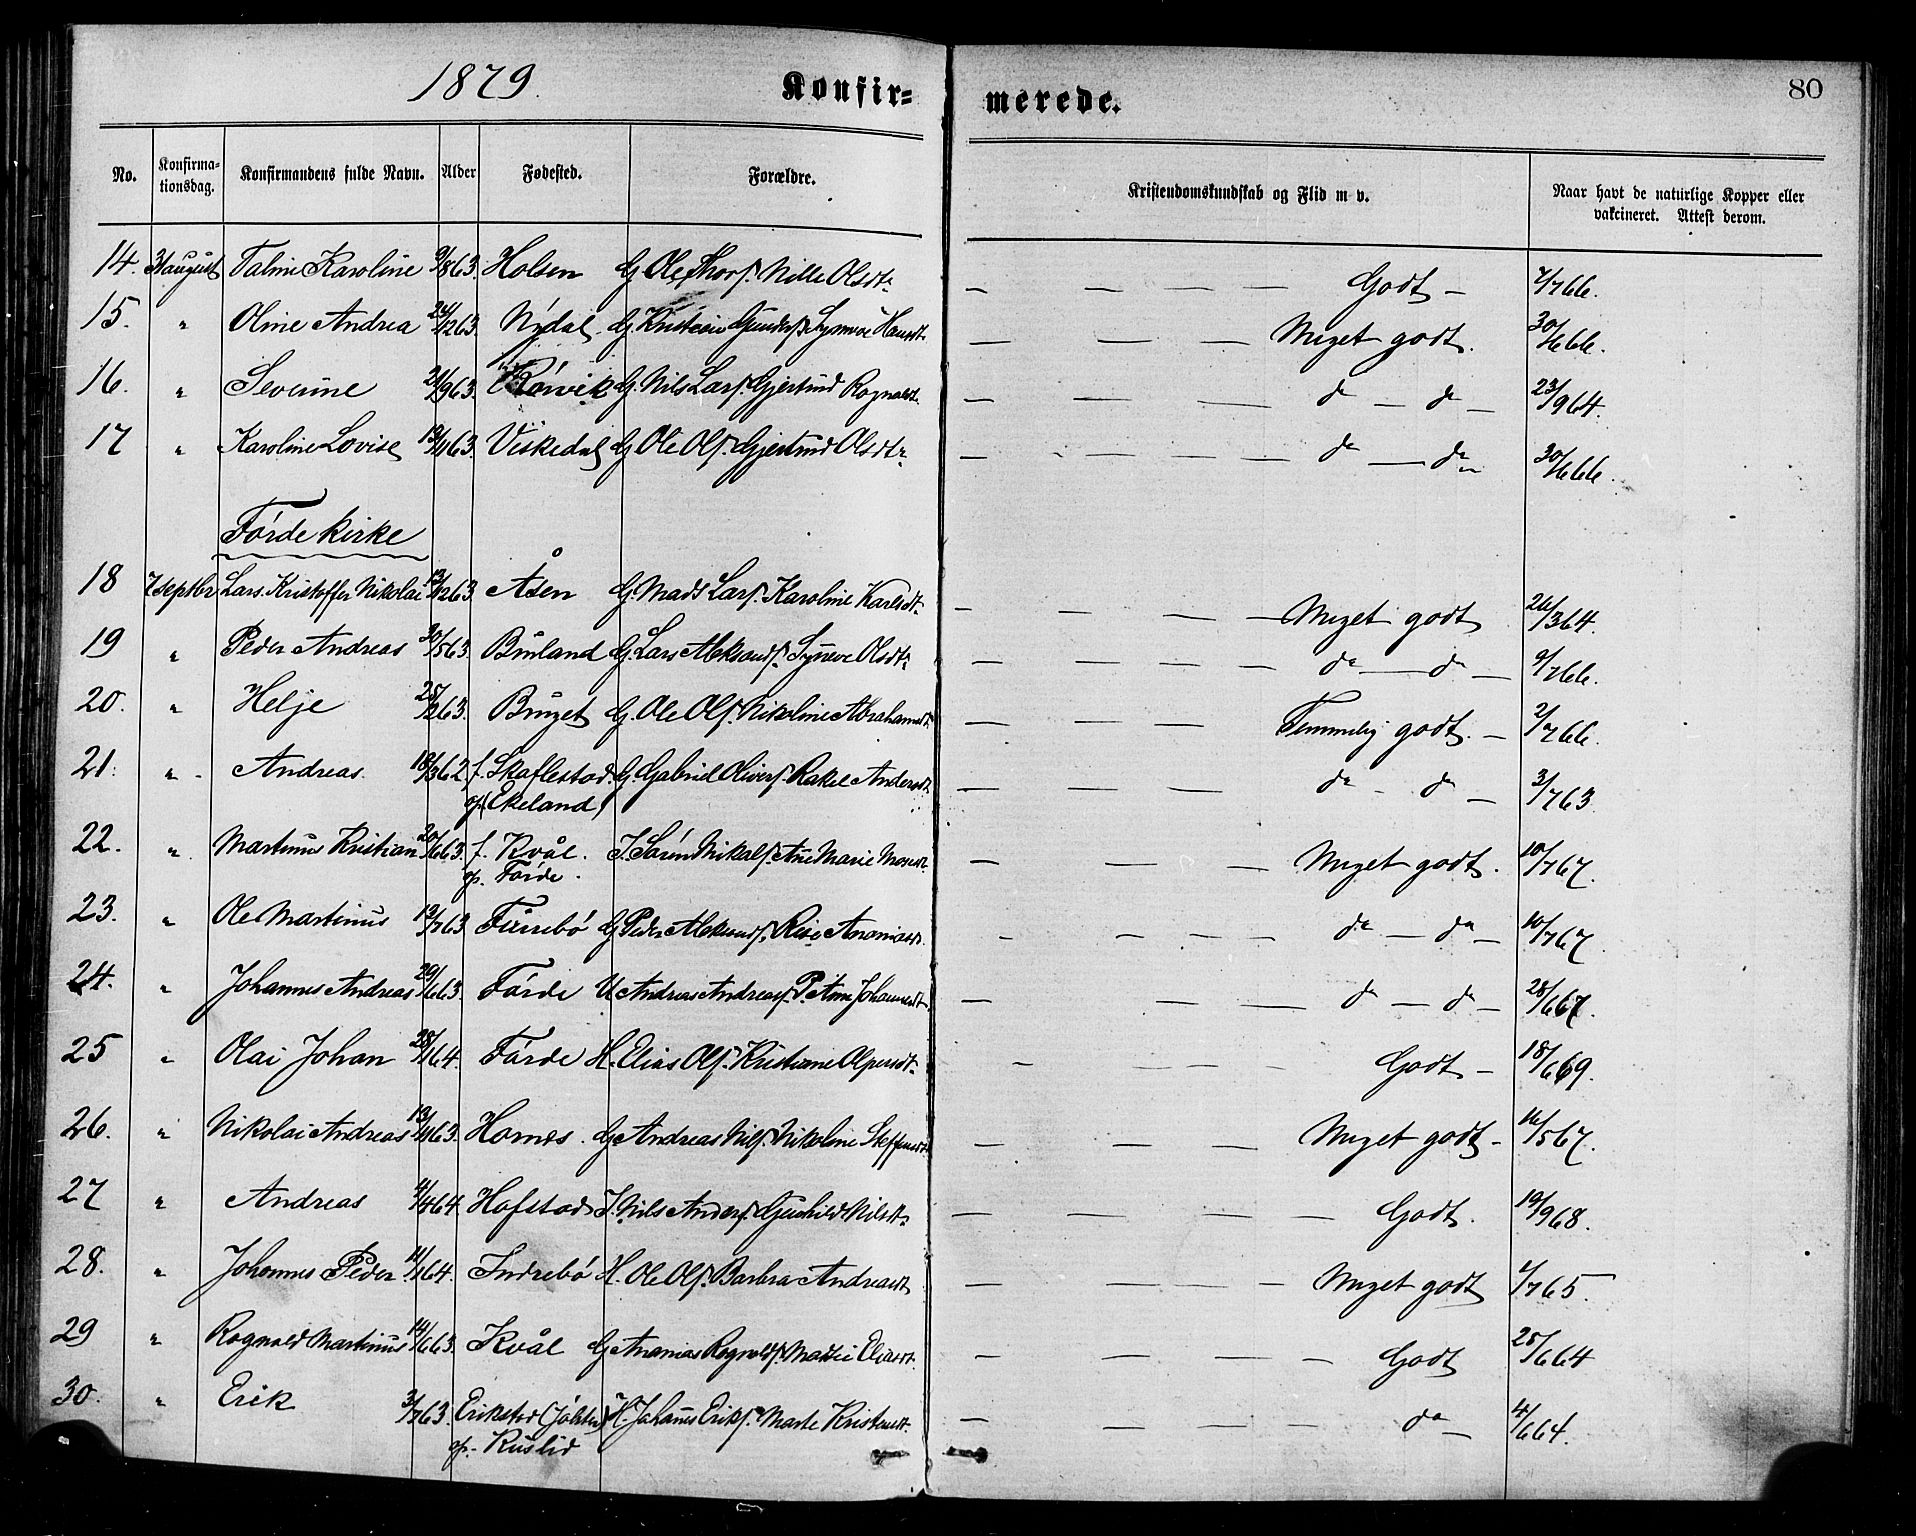 1879. Konfir= merede. 80
No. Konfirma- tionsdag. Konfirmandens fulde Navn. Alder Fødested. Forældre. Kristendomskundskab og Flid m v. Naar havt de naturlige Kopper eller vakcineret. Attest derom.
14. 31 august Taline Karoline 9/863. Holsen G Ole Thors. Nille Olsdtr — — — — Godt — 7/766.
15. " Oline Andrea 24/1263. Nydal. G Kristian Gunders. Synneve Hansdt. — — — — Meget godt. 30/666.
16. " Severine 21/963. Rörvik G. Nils Lars. Gjertrud Rognaldt. — — — d° — d° — 23/964.
17 " Karoline Lovise 13/1163. Viskedal G Ole Ols. Gjertrud Olsdtr — — — — — d° — d° 30/666.
Förde Kirke
18 7 septbr Lars Kristoffer Nikolai 13/1263. Åsen G. Mads Lars. Karoline Karlsdt. — — — Meget godt 26/364.
19 " Peder Andreas 30/563. Bruland G. Lars Aleksands. Synneve Olsdtr — — — — d° — d° — 9/766.
20. " Helje 25/263. Bruget G. Ole Ols. Nikoline Abrahamsdt. — — — — Temmelig godt. — 2/766.
21. " Andreas. 18/362. f. Skaflestad. G. Gabriel Olivers. Rakel Andersdt. — — — — d° - d° — 3/763.
op. Ekeland
22. " Martinus Kristian 20/663. f. Kvål. I. Sören Nikols. Ane Marie Monsdt. — — — Meget godt. 10/767.
op. Förde.
23. " Ole Martinus 19/763 Furrebö G Peder Aleksands. Rise Ananiasdt. — — — — d° — d° — 10/767.
24. " Johannes Andreas 29/663. Förde U Andreas Andreass. P. Anne Johannesdt. — — — d° — d° — 28/667.
25 " Olai Johan 28/164. Förde H. Elias Ols. Kristiane Alpersdtr — — — — Godt — 18/669.
26. " Nikolai Andreas 13/1163. Hornes. G Andreas Nils. Nikoline Steffensdt. — — — — Meget godt — 16/567.
27 " Andreas 4/464. Hafstad I. Nils Anders. Gunhild Nilsdtr — — — — — Godt. 19/968.
28. " Johannes Peder 11/164. Indrebö H. Ole Ols. Barbra Andreasdt. — — — — — Meget godt 1/765.
29 " Rognald Martinus 14/663. Kvål G Ananias Rognalds. Marie Eliasdt. — — — — Godt 25/664
30. " Erik 3/763. Erikstad (Jölster) H. Johannes Eriks. Marte Kristensdt. — — — — d° — 4/664.
op. Kuslid